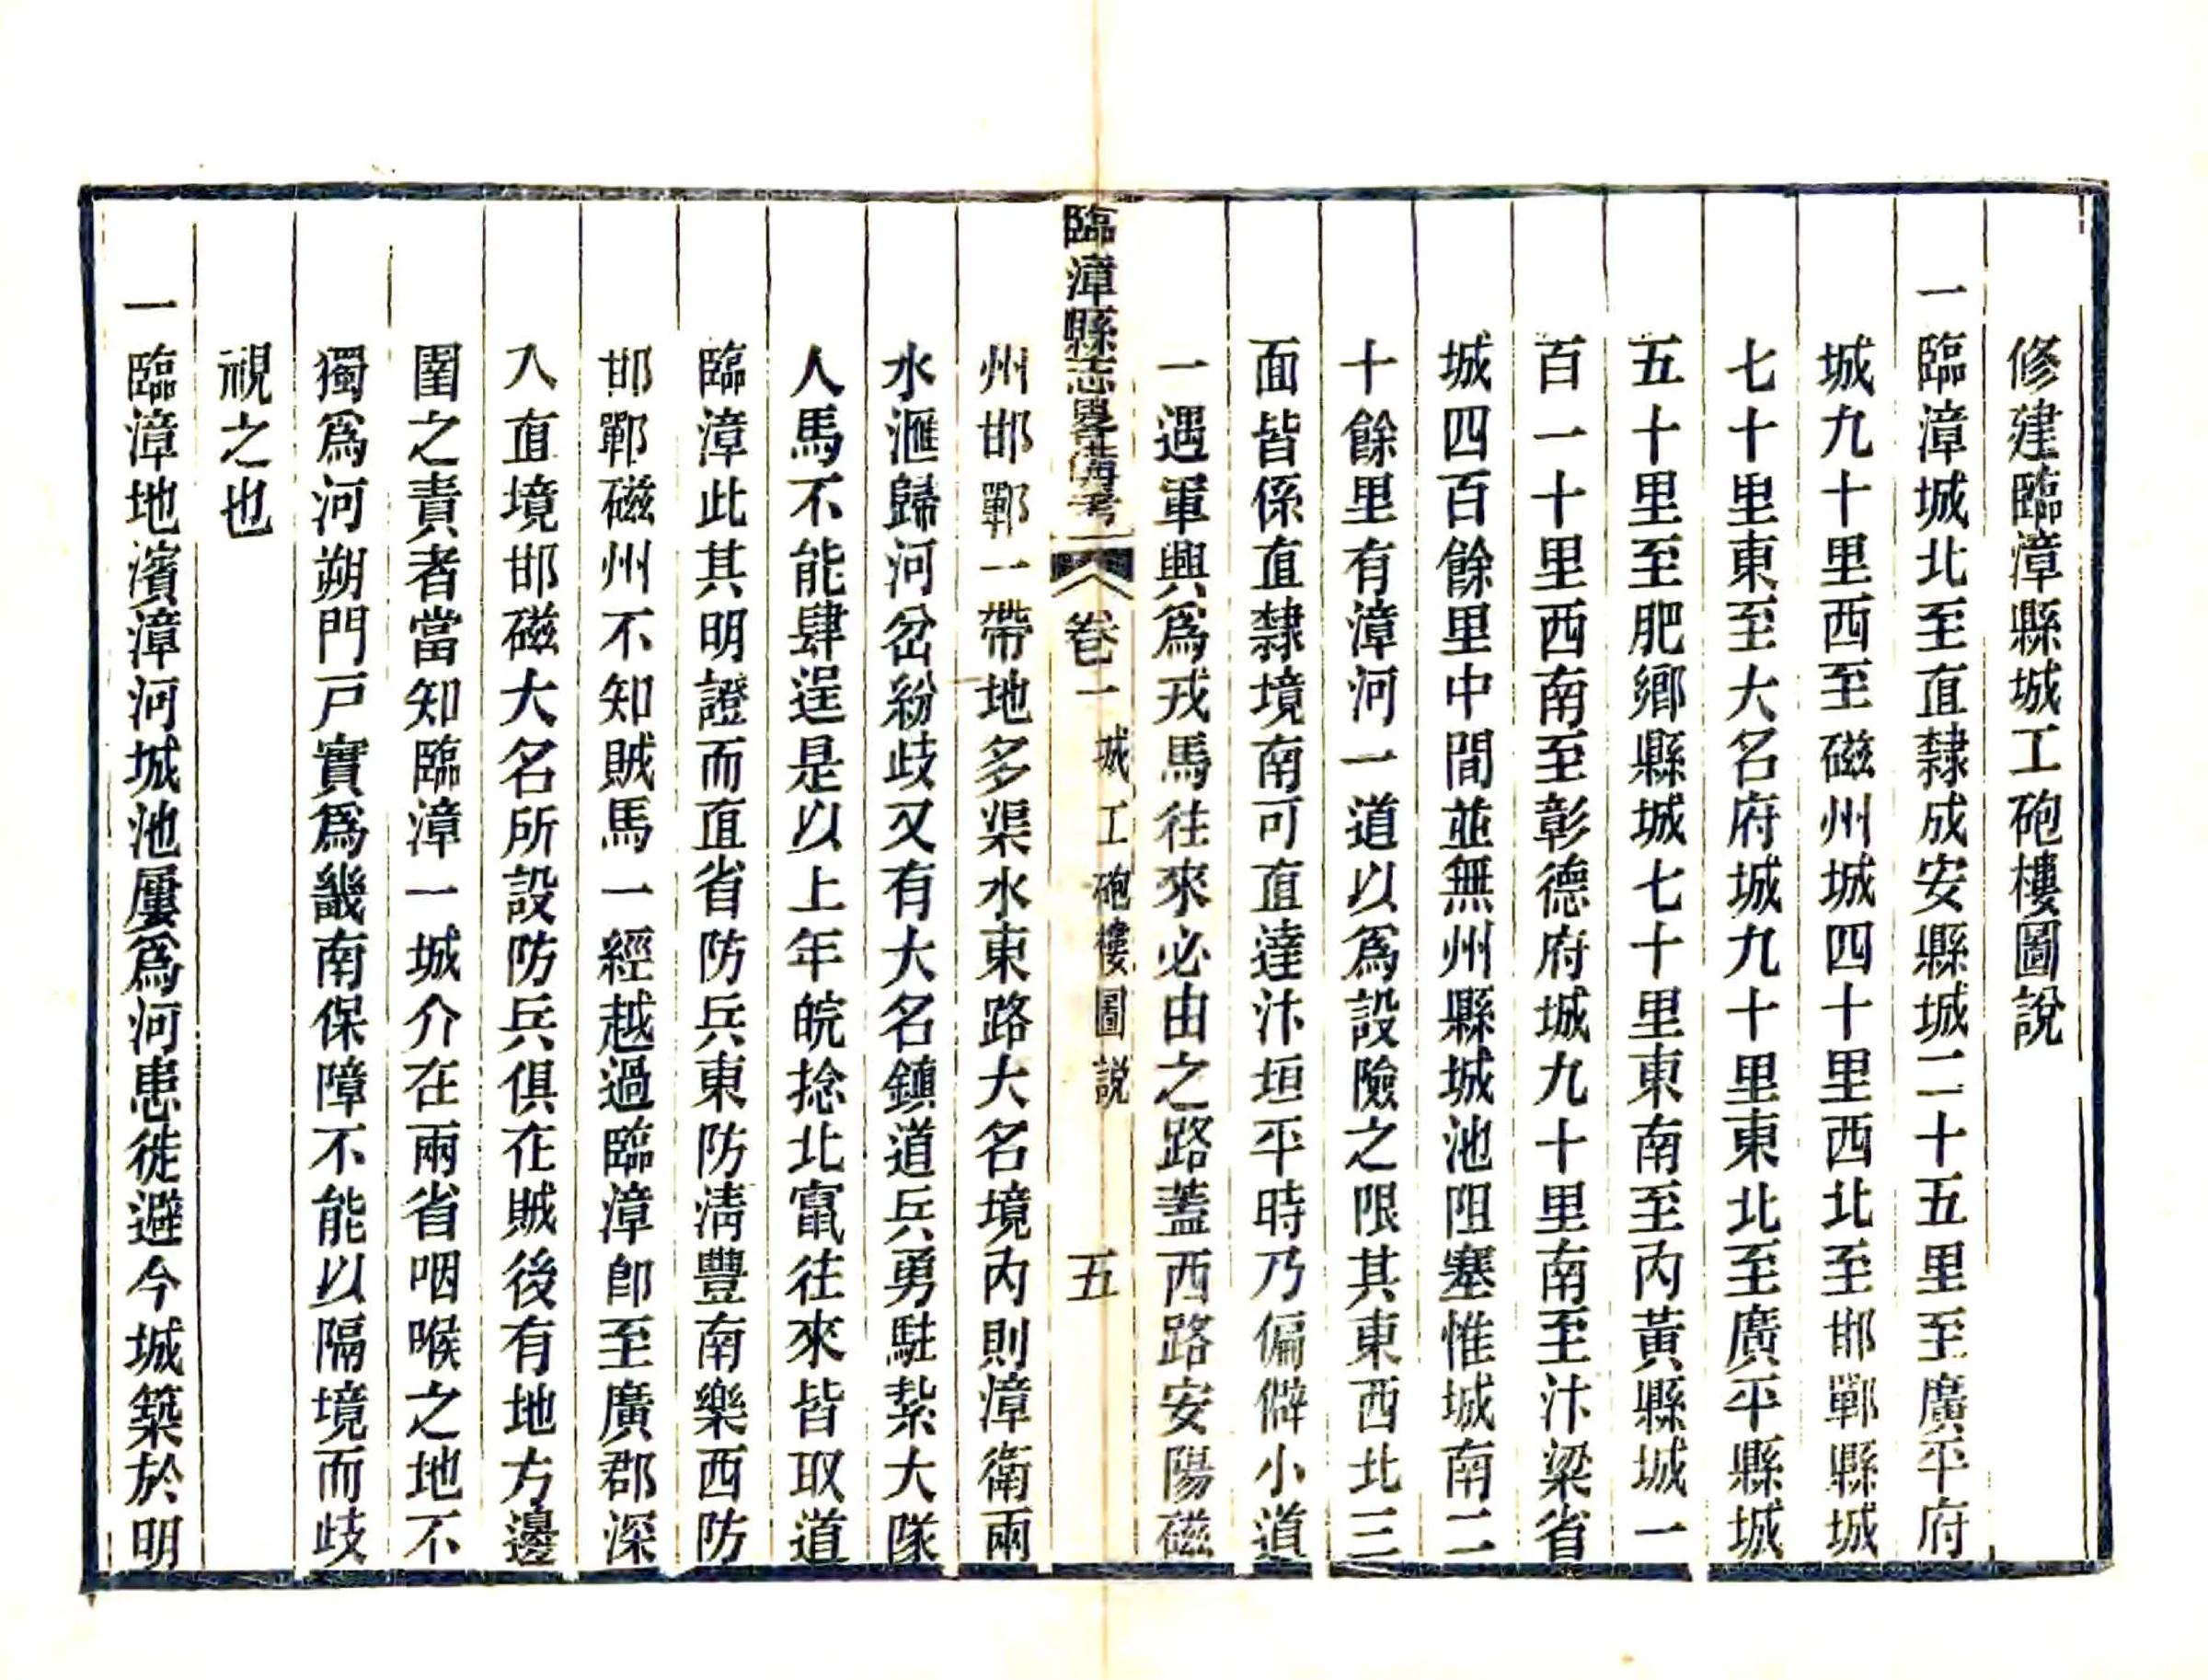 修建臨漳縣城工砲樓圖說
一臨漳城北至直隸成安縣城二十五里至廣平府
城九十里西至磁州城四十里西北至邯鄲縣城
七十里東至大名府城九十里東北至廣平縣城
五十里至肥鄉縣城七十里東南至內黃縣城一
百一十里西南至彰德府城九十里南至汴梁省
城四百餘里中間並無州縣城池阻塞惟城南二
十餘里有漳河一道以爲設險之限其東西北三
面皆係直隸境南可直達汴垣平時乃偏僻小道
一遇軍興爲戎馬往來必由之路蓋西路安陽磁
臨漳縣志畧備考 卷一 城工砲樓圖説 五
州邯鄲一帶地多渠水東路大名境內則漳衛兩
水滙歸河岔紛歧又有大名鎮道兵勇駐紮大隊
人馬不能肆逞是以上年皖捻北竄往來皆取道
臨漳此其明證而直省防兵東防清豐南樂西防
邯鄲磁州不知賊馬一經越過臨漳卽至廣郡深
入直境邯磁大名所設防兵俱在賊後有地方邊
圉之責者當知臨漳一城介在兩省咽喉之地不
獨爲河朔門戸實爲畿南保障不能以隔境而歧
視之也
一臨漳地濱漳河城池屢爲河患徙避今城築於明